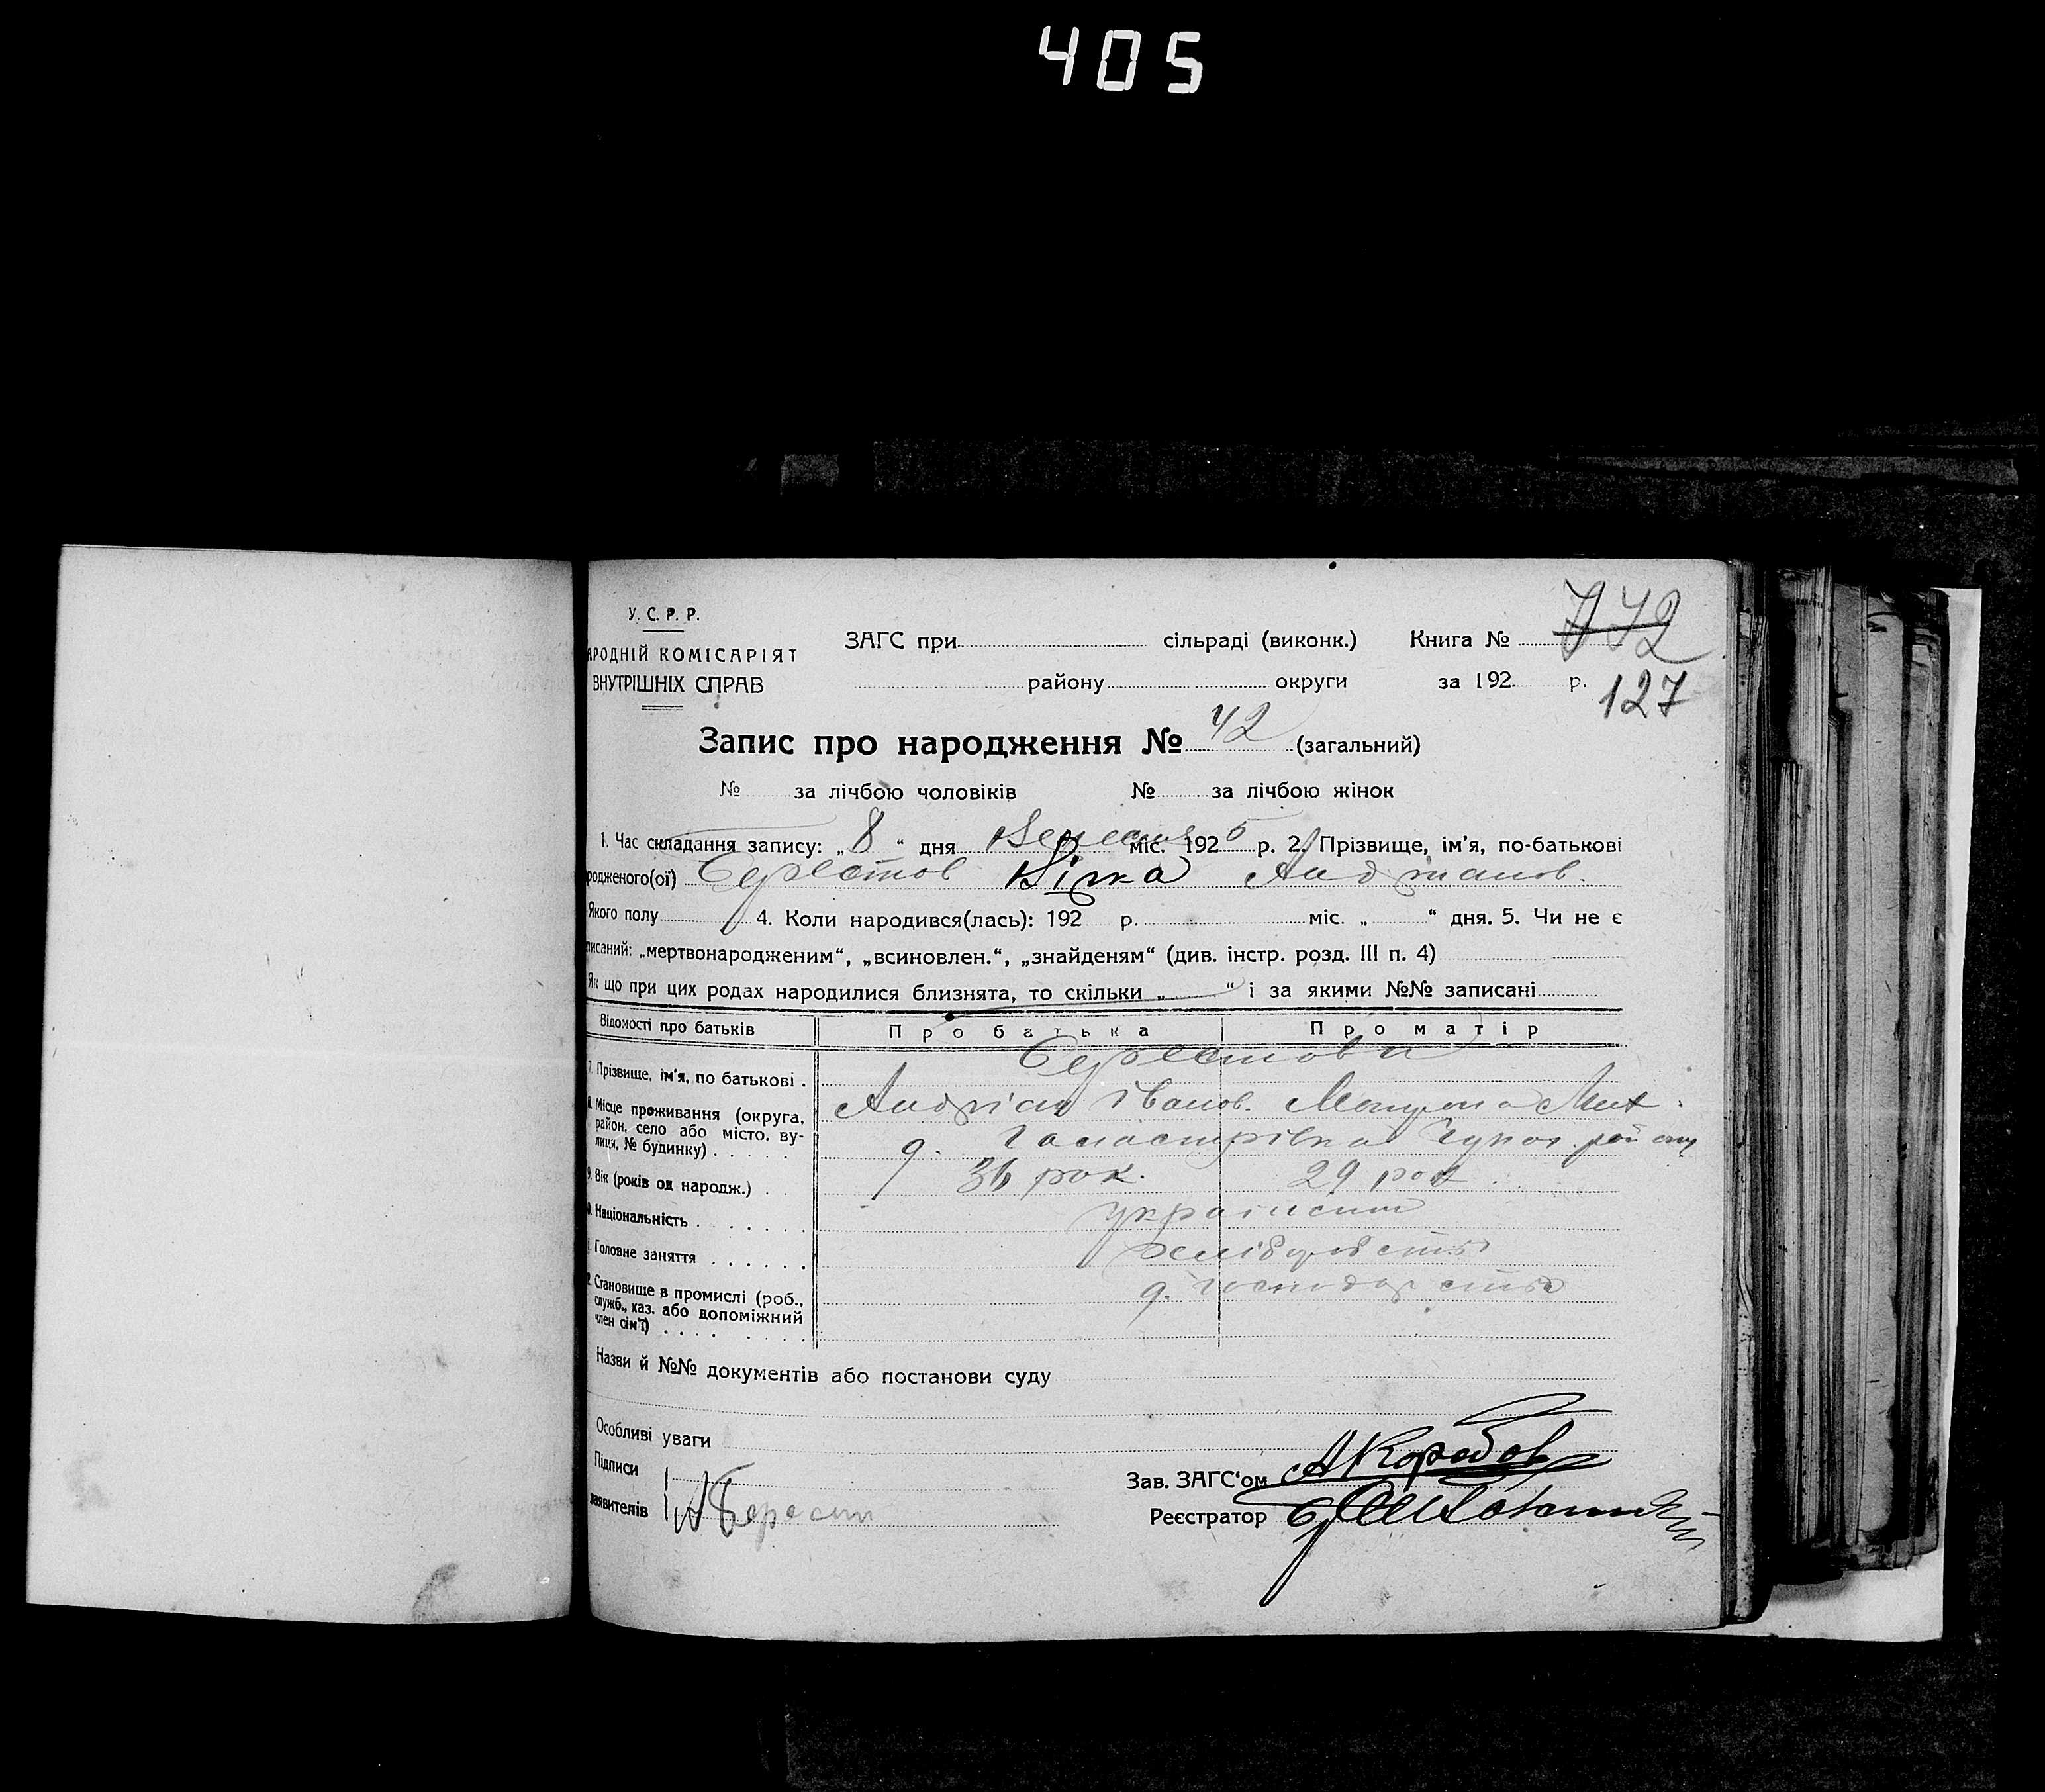 405
У. С. Р. Р.
АРОДНІЙ КОМІСАРІЯТ
ВНУТРІШНІХ СПРАВ
ЗАГС при сільраді (виконк.) Книга № 772
району округи за 192 р. 127
Запис про народження № 42 (загальний)
№ за лічбою чоловіків № за лічбою жінок
1. Час складання запису: „8“ дня міс. 1925 р. 2. Прізвище, ім'я, по-батькові
родженого(ої) Берестов Віка
Якого полу 4. Коли народився(лась): 192 р. міс. „ “ дня. 5. Чи не є
писаний: „мертвонародженим“, „всиновлен.“, „знайденям“ (див. інстр. розд. III п. 4)
Як що при цих родах народилися близнята, то скільки „ “ і за якими №№ записані
Відомості про батьків Про батька Про матір
7. Прізвище, ім'я, по батькові . Берестови
Андріан Іванов. Мих.
8. Місце проживання (округа,
район, село або місто, ву-
лиця, № будинку) . . . . .
9. Вік (років од народж.) . . 36 рок. 29 рок.
Національність . . . . . . . українськ
Головне заняття . . . . . . хлібороб
Становище в промислі (роб.,
служб., хаз. або допоміжний
член сім'ї) . . . . . . . .
Назви й №№ документів або постанови суду
Особливі уваги
Підписи
заявителів Берест
Зав. ЗАГС'ом АКоробов
Реєстратор